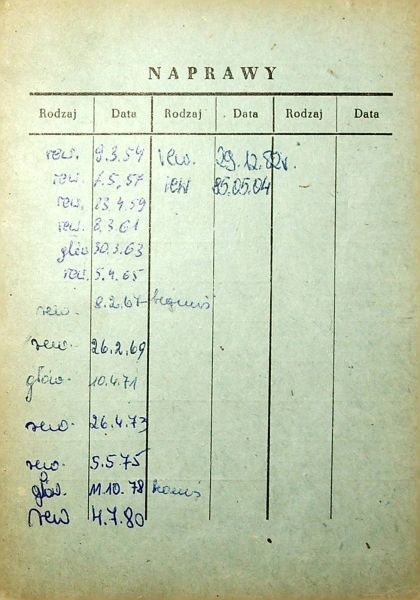 NAPRAWY
Rodzaj Data Rodzaj Data Rodzaj Data
rew. 9.3.54 rew. 29.12.82r.
rew. 2.5.57 rew 85.05.04
rew. 23.4.59
rew. 8.3.61
głów 30.3.63
rew. 5.4.65
rew. 8.2.67
rew. 26.2.69
głów. 10.4.71
rew. 26.4.73
rew. 5.5.75
głów. 11.10.78
rew 4.7.80